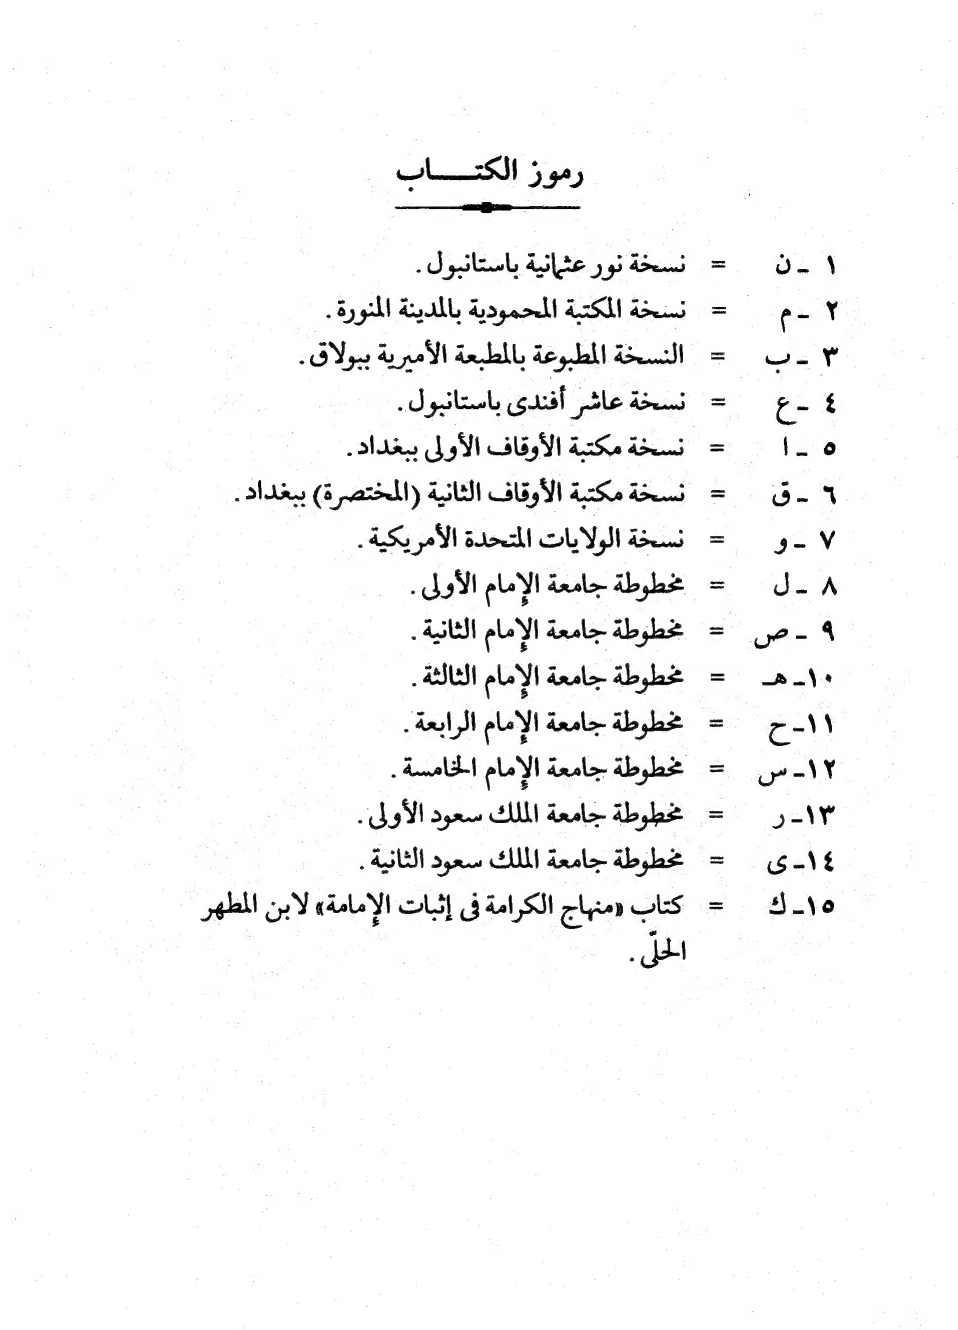 رموز الكتـــاب
١ ـ ن = نسخة نور عثمانية باستانبول .
٢ ـ م = نسخة المكتبة المحمودية بالمدينة المنورة .
٣ ـ ب = النسخة المطبوعة بالمطبعة الأميرية ببولاق .
٤ ـ ع = نسخة عاشر أفندى باستانبول .
٥ ـ ا = نسخة مكتبة الأوقاف الأولى ببغداد .
٦ ـ ق = نسخة مكتبة الأوقاف الثانية (المختصرة) ببغداد .
٧ ـ و = نسخة الولايات المتحدة الأمريكية .
٨ ـ ل = مخطوطة جامعة الإمام الأولى .
٩ ـ ص = مخطوطة جامعة الإمام الثانية .
١٠ـ هـ = مخطوطة جامعة الإمام الثالثة .
١١ـ ح = مخطوطة جامعة الإمام الرابعة .
١٢ـ س = مخطوطة جامعة الإمام الخامسة .
١٣ـ ر = مخطوطة جامعة الملك سعود الأولى .
١٤ـ ى = مخطوطة جامعة الملك سعود الثانية .
١٥ـ ك = كتاب «منهاج الكرامة فى إثبات الإمامة» لابن المطهر
الحلّى .